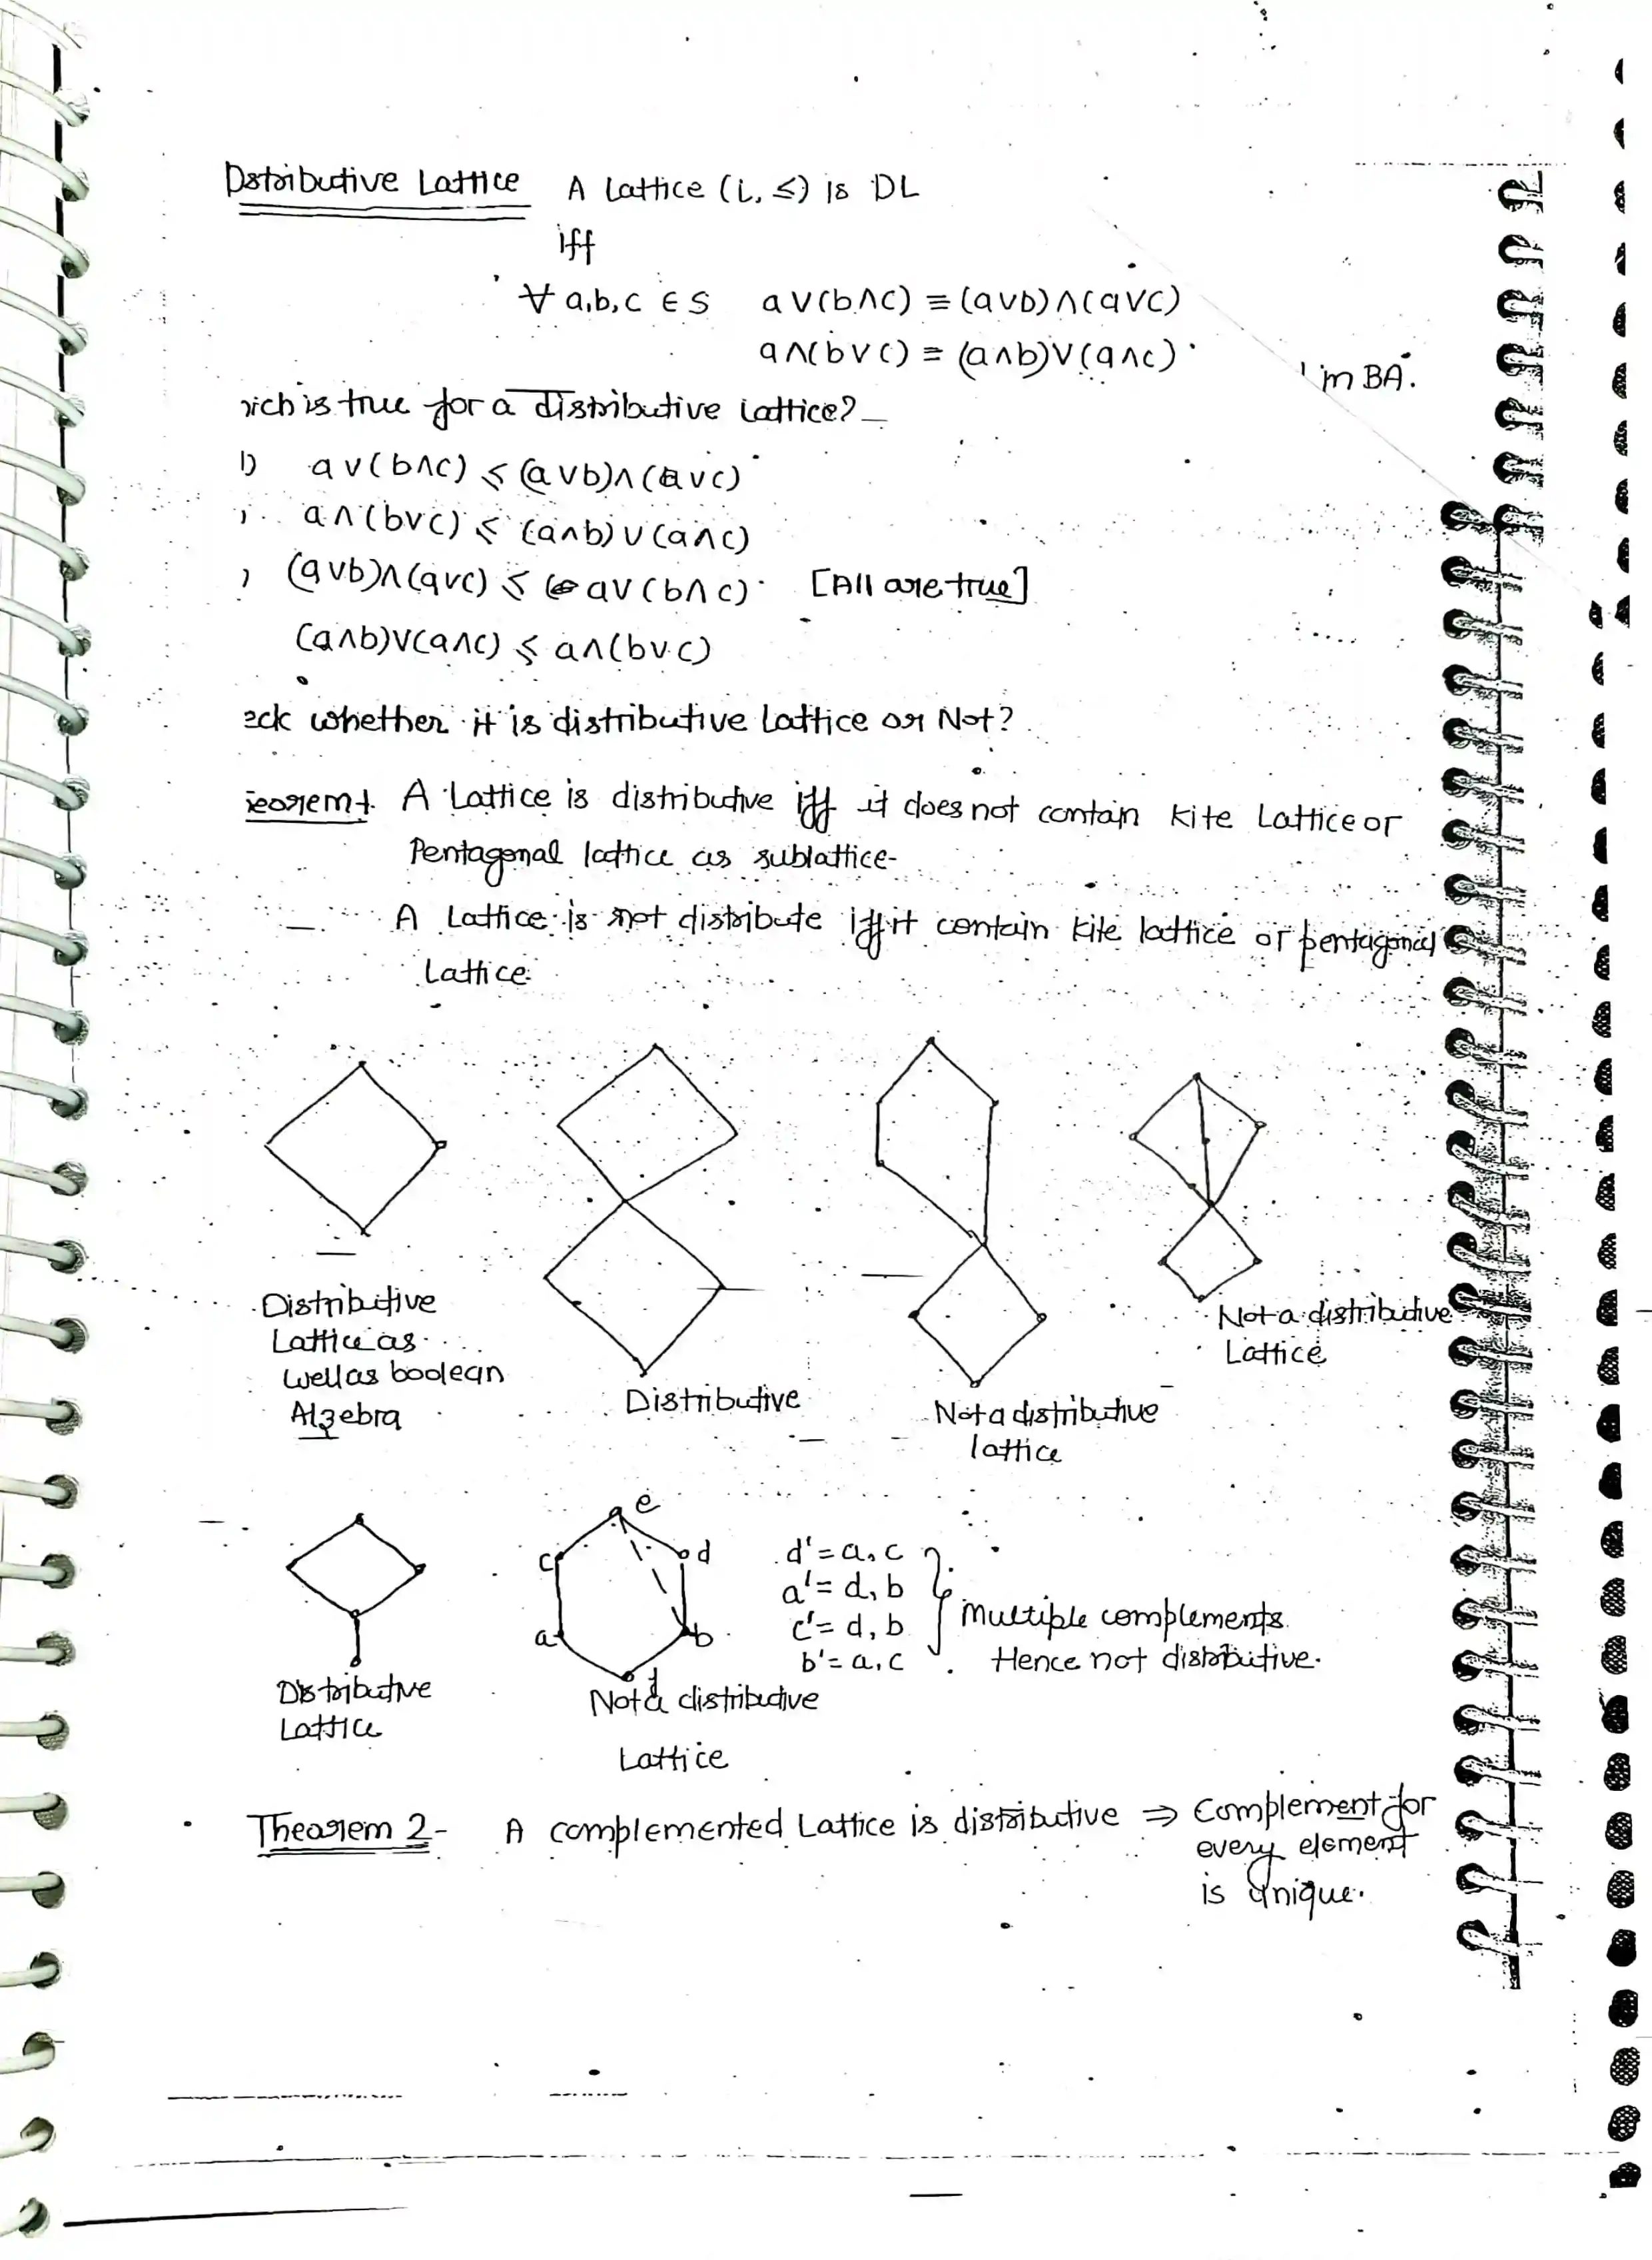 Dstributive Lattice A Lattice (L, ≤) is DL
iff
∀ a,b,c ∈ S a∨(b∧c) ≡ (a∨b)∧(a∨c)
a∧(b∨c) ≡ (a∧b)∨(a∧c)
in BA.
hich is true for a distributive lattice?
1) a∨(b∧c) ≤ (a∨b)∧(a∨c)
a∧(b∨c) ≤ (a∧b)∨(a∧c)
(a∨b)∧(a∨c) ≤ a∨(b∧c) [All are true]
(a∧b)∨(a∧c) ≤ a∧(b∨c)
eck whether it is distributive Lattice or Not?
eorem 1 A Lattice is distributive iff it does not contain kite Lattice or
Pentagonal lattice as sublattice-
A Lattice is not distribute iff it contain kite lattice or pentagonal
Lattice.
Distributive
Lattice as
well as boolean
Algebra
Distributive
Not a distributive
lattice
Not a distributive
Lattice
e
c
d
a
b
d' = a, c
a' = d, b
c' = d, b
b' = a, c
Multiple complements.
Hence not distributive.
Distributive
Lattice
Not a distributive
Lattice
Theorem 2- A complemented Lattice is distributive ⇒ Complement for
every element
is unique.